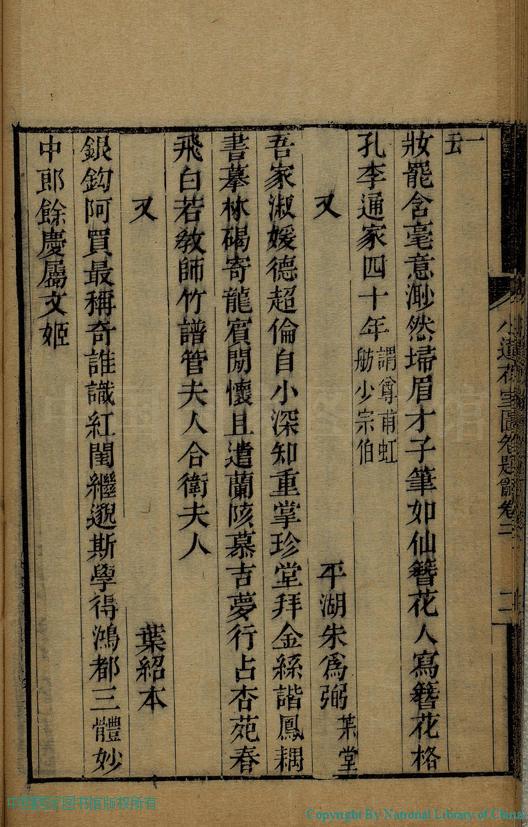 一云
妝罷含毫意渺然埽眉才子筆如仙簪花人寫簪花格
孔李通家四十年謂尊甫虹舫少宗伯
又
平湖朱爲弼茮堂
吾家淑媛德超倫自小深知重掌珍堂拜金絲諧鳳耦
書摹林碣寄龍賓閒懷且遣蘭陔慕吉夢行占杏苑春
飛白若敎師竹譜管夫人合衛夫人
又
葉紹本
銀鈎阿買最稱奇誰識紅閨繼邈斯學得鴻都三體妙
中郎餘慶屬文姬
卷二
中国国家图书馆版权所有
Copyright By National Library of China